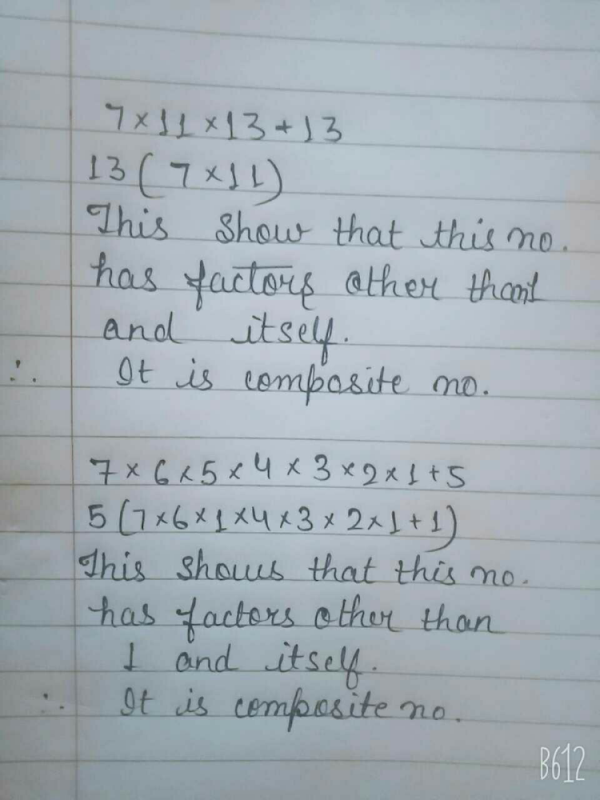 7×11×13+13
13(7×11)
This show that this no.
has factors other than 1
and itself.
∴ It is composite no.
7×6×5×4×3×2×1+5
5(7×6×1×4×3×2×1+1)
This shows that this no.
has factors other than
1 and itself.
∴ It is composite no.
B612